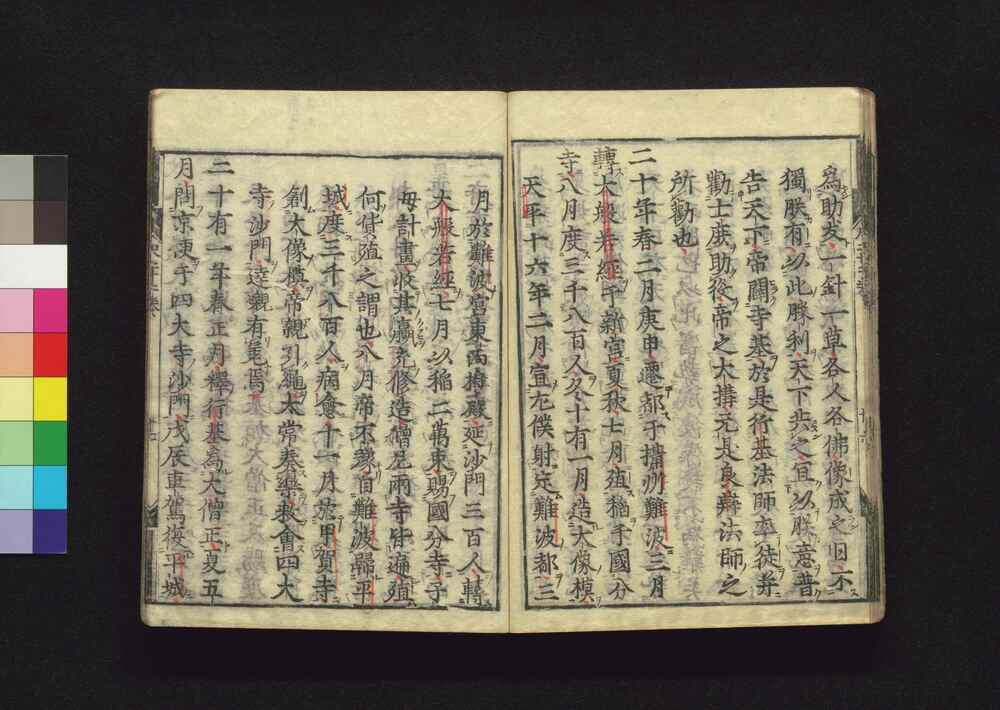 為助夫一針一草各人各佛像成之日不
獨朕有以此勝利天下共之宜以朕意普
告天下帝闢寺基於是行基法師率徒弟
勸士庶助役帝之大搆元是良辨法師之
所勸也
二十年春二月庚申遷都于攝州難波三月
轉大般若經于新宮夏秋七月殖稻于國分
寺八月度三千八百人冬十有一月造大像模
天平十六年二月宣左僕射定難波都三
月於難波宮東西樓殿延沙門三百人轉
大般若經七月以稻二萬束賜國分寺子
每計畫收其贏充修造僧尼兩寺時論殖
何貨殖之謂也八月帝不豫自難波歸平
城度三千八百人病愈十一月於甲賀寺
創大像模帝親引繩太常奏樂敕會四大
寺沙門達嚫有差焉
二十有一年春正月釋行基為大僧正夏五
月問京吏于四大寺沙門戊辰車駕復平城